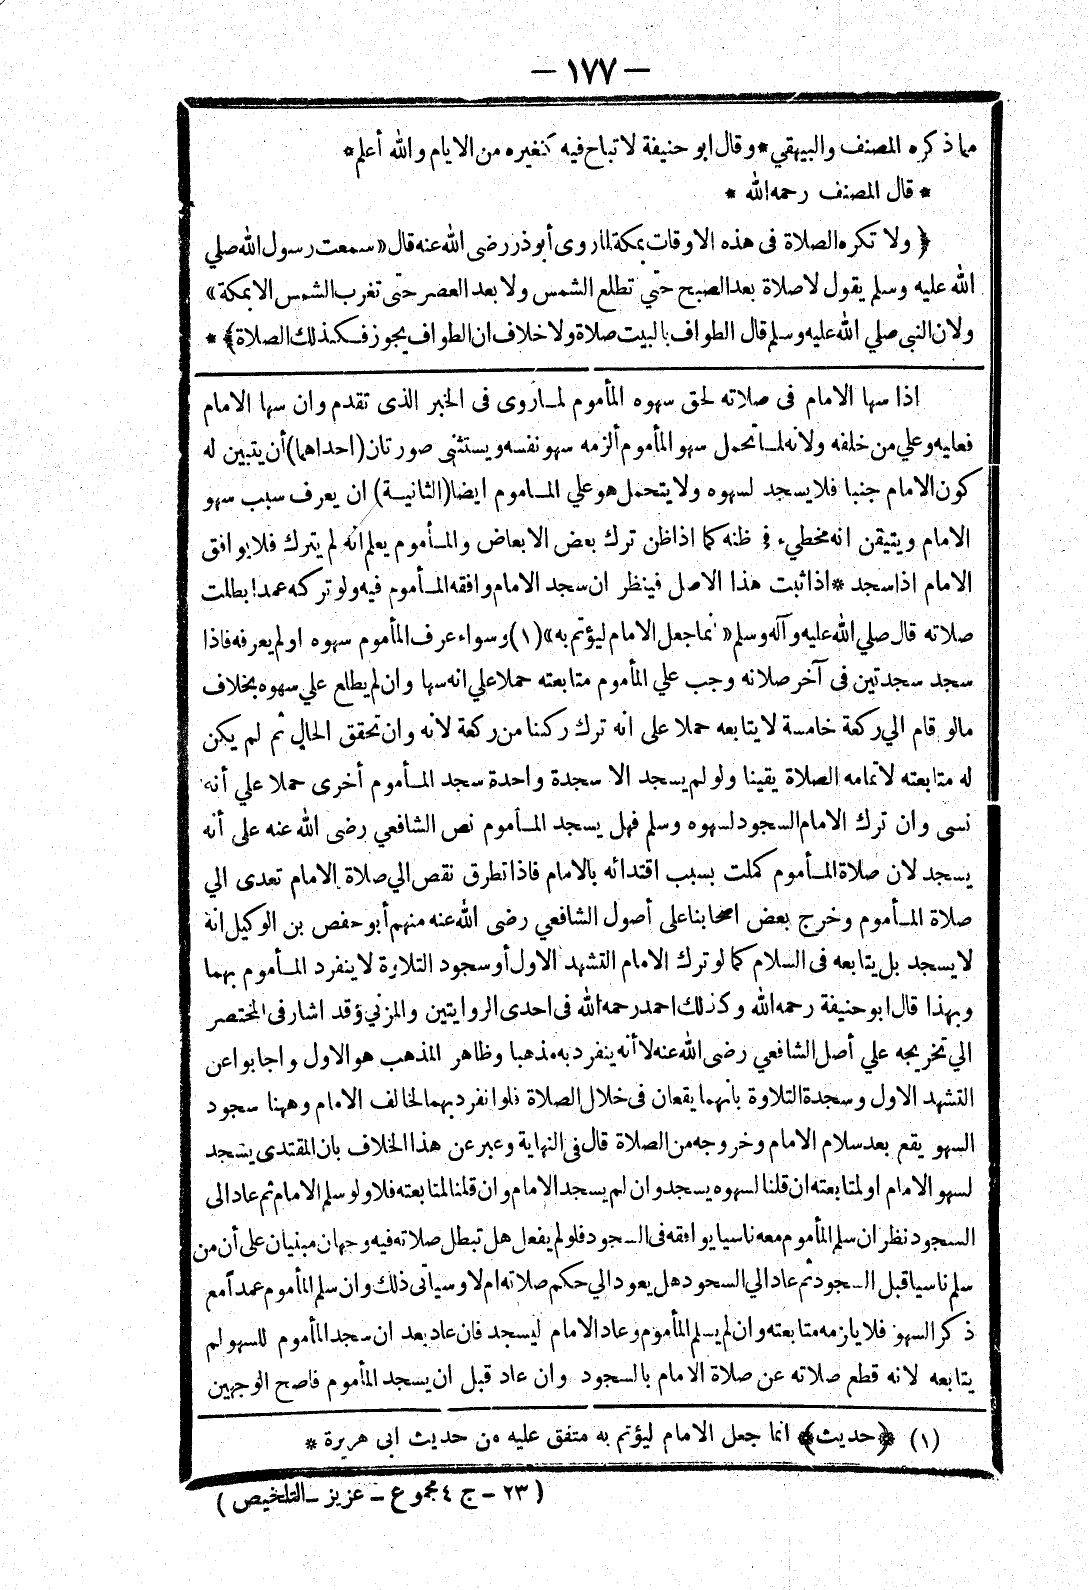 — ١٧٧ —
مما ذكره المصنف والبيهقي * وقال ابو حنيفة لا تباح فيه كغيره من الايام والله أعلم *
* قال المصنف رحمه الله *
﴿ ولا تكره الصلاة فى هذه الاوقات بمكة لما روى أبو ذر رضى الله عنه قال « سمعت رسول الله صلي
الله عليه وسلم يقول لا صلاة بعد الصبح حتي تطلع الشمس ولا بعد العصر حتى تغرب الشمس الا بمكة »
ولان النبى صلي الله عليه وسلم قال الطواف بالبيت صلاة ولا خلاف ان الطواف يجوز فكذلك الصلاة ﴾ *
اذا سها الامام فى صلاته لحق سهوه المأموم لما روى فى الخبر الذى تقدم وان سها الامام
فعليه وعلي من خلفه ولانه لما تحمل سهو المأموم ألزمه سهو نفسه ويستثنى صورتان (احداهما) أن يتبين له
كون الامام جنبا فلا يسجد لسهوه ولا يتحمل هو علي الماموم ايضا (الثانية) ان يعرف سبب سهو
الامام ويتيقن انه مخطيء فى ظنه كما اذا ظن ترك بعض الابعاض والمأموم يعلم انه لم يترك فلا يوافق
الامام اذا سجد * اذا ثبت هذا الاصل فينظر ان سجد الامام وافقه المأموم فيه ولو تركه عمدا بطلت
صلاته قال صلي الله عليه وآله وسلم « انما جعل الامام ليؤتم به » (١) وسواء عرف المأموم سهوه او لم يعرفه فاذا
سجد سجدتين فى آخر صلاته وجب علي المأموم متابعته حملا علي انه سها وان لم يطلع علي سهوه بخلاف
مالو قام الي ركعة خامسة لا يتابعه حملا على انه ترك ركنا من ركعة لانه وان تحقق الحال ثم لم يكن
له متابعته لاتمامه الصلاة يقينا ولو لم يسجد الا سجدة واحدة سجد المأموم أخرى حملا علي أنه
نسى وان ترك الامام السجود لسهوه وسلم فهل يسجد المأموم نص الشافعي رضى الله عنه على أنه
يسجد لان صلاة المأموم كملت بسبب اقتدائه بالامام فاذا تطرق نقص الي صلاة الامام تعدى الي
صلاة المأموم وخرج بعض اصحابنا على أصول الشافعي رضى الله عنه منهم أبو حفص بن الوكيل انه
لا يسجد بل يتابعه فى السلام كما لو ترك الامام التشهد الاول أو سجود التلاوة لا ينفرد المأموم بهما
وبهذا قال ابو حنيفة رحمه الله وكذلك احمد رحمه الله فى احدى الروايتين والمزني وقد اشار فى المختصر
الي تخريجه علي أصل الشافعي رضى الله عنه لا أنه ينفرد به مذهبا وظاهر المذهب هو الاول واجابوا عن
التشهد الاول وسجدة التلاوة بانهما يقعان فى خلال الصلاة فلو انفرد بهما لخالف الامام وههنا سجود
السهو يقع بعد سلام الامام وخروجه من الصلاة قال فى النهاية وعبر عن هذا الخلاف بان المقتدى يسجد
لسهو الامام او لمتابعته ان قلنا لسهوه يسجد وان لم يسجد الامام وان قلنا لمتابعته فلا ولو سلم الامام ثم عاد الى
السجود نظر ان سلم المأموم معه ناسيا يوافقه فى السجود فلو لم يفعل هل تبطل صلاته فيه وجهان مبنيان على أن من
سلم ناسيا قبل السجود ثم عاد الي السجود هل يعود الي حكم صلاته ام لا وسيأتى ذلك وان سلم المأموم عمداً مع
ذكر السهو فلا يلزمه متابعته وان لم يسلم المأموم وعاد الامام ليسجد فان عاد بعد ان سجد المأموم للسهو لم
يتابعه لانه قطع صلاته عن صلاة الامام بالسجود وان عاد قبل ان يسجد المأموم فاصح الوجهين
(١) ﴿ حديث ﴾ انما جعل الامام ليؤتم به متفق عليه من حديث ابى هريرة *
( ٢٣ - ج ٤ مجموع - عزيز - التلخيص )